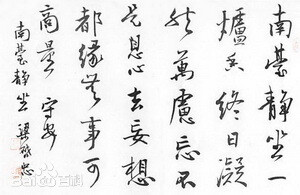 南臺靜坐一
爐香終日凝
然萬慮忘不
是息心去妄想
都緣無事可
商量 守安
南臺靜坐 梁啟忠
Bai百科